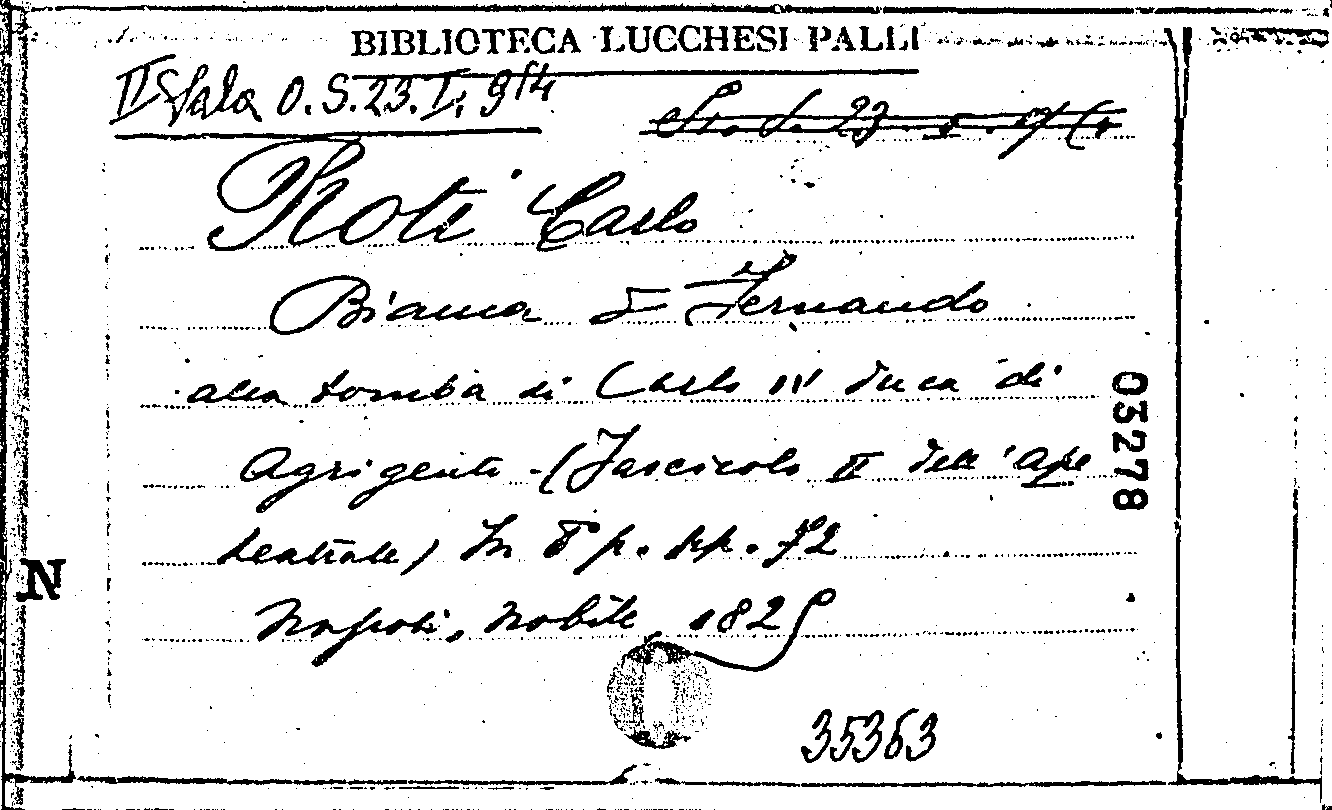 BIBLIOTECA LUCCHESI PALLI
II Sala O.S.23.I.9(4
Roti Carlo
Bianca e Fernando
alla tomba di Carlo IV duca di
Agrigento - (Fascicolo II dell'Ape
teatrale) In 8° p. pp. 72
Napoli, Nobile, 1825
03278
N
35363